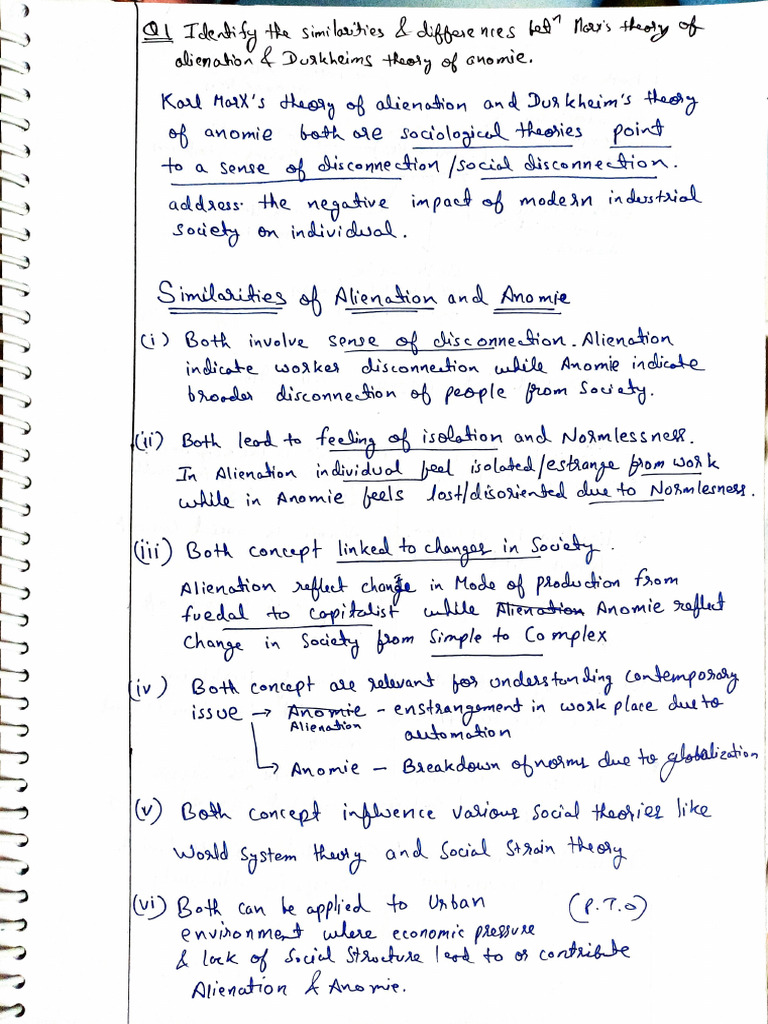 Q1 Identify the similarities & differences betn Marx's theory of
alienation & Durkheims theory of anomie.
Karl Marx's theory of alienation and Durkheim's theory
of anomie both are sociological theories point
to a sense of disconnection/social disconnection.
address the negative impact of modern industrial
society on individual.
Similarities of Alienation and Anomie
(i) Both involve sense of disconnection. Alienation
indicate worker disconnection while Anomie indicate
broader disconnection of people from Society.
(ii) Both lead to feeling of isolation and Normlessness.
In Alienation individual feel isolated/estrange from work
while in Anomie feels lost/disoriented due to Normlesness.
(iii) Both concept linked to changes in Society.
Alienation reflect change in Mode of production from
fuedal to capitalist while Alienation Anomie reflect
Change in Society from Simple to Complex
(iv) Both concept are relevant for understanding contemporary
issue → Anomie - enstrangement in work place due to
Alienation automation
↳ Anomie - Breakdown of norms due to globalization
(v) Both concept influence various social theories like
World System theory and Social Strain theory
(vi) Both can be applied to Urban (P.T.O)
environment where economic pressure
& lack of Social Structure lead to or contribute
Alienation & Anomie.